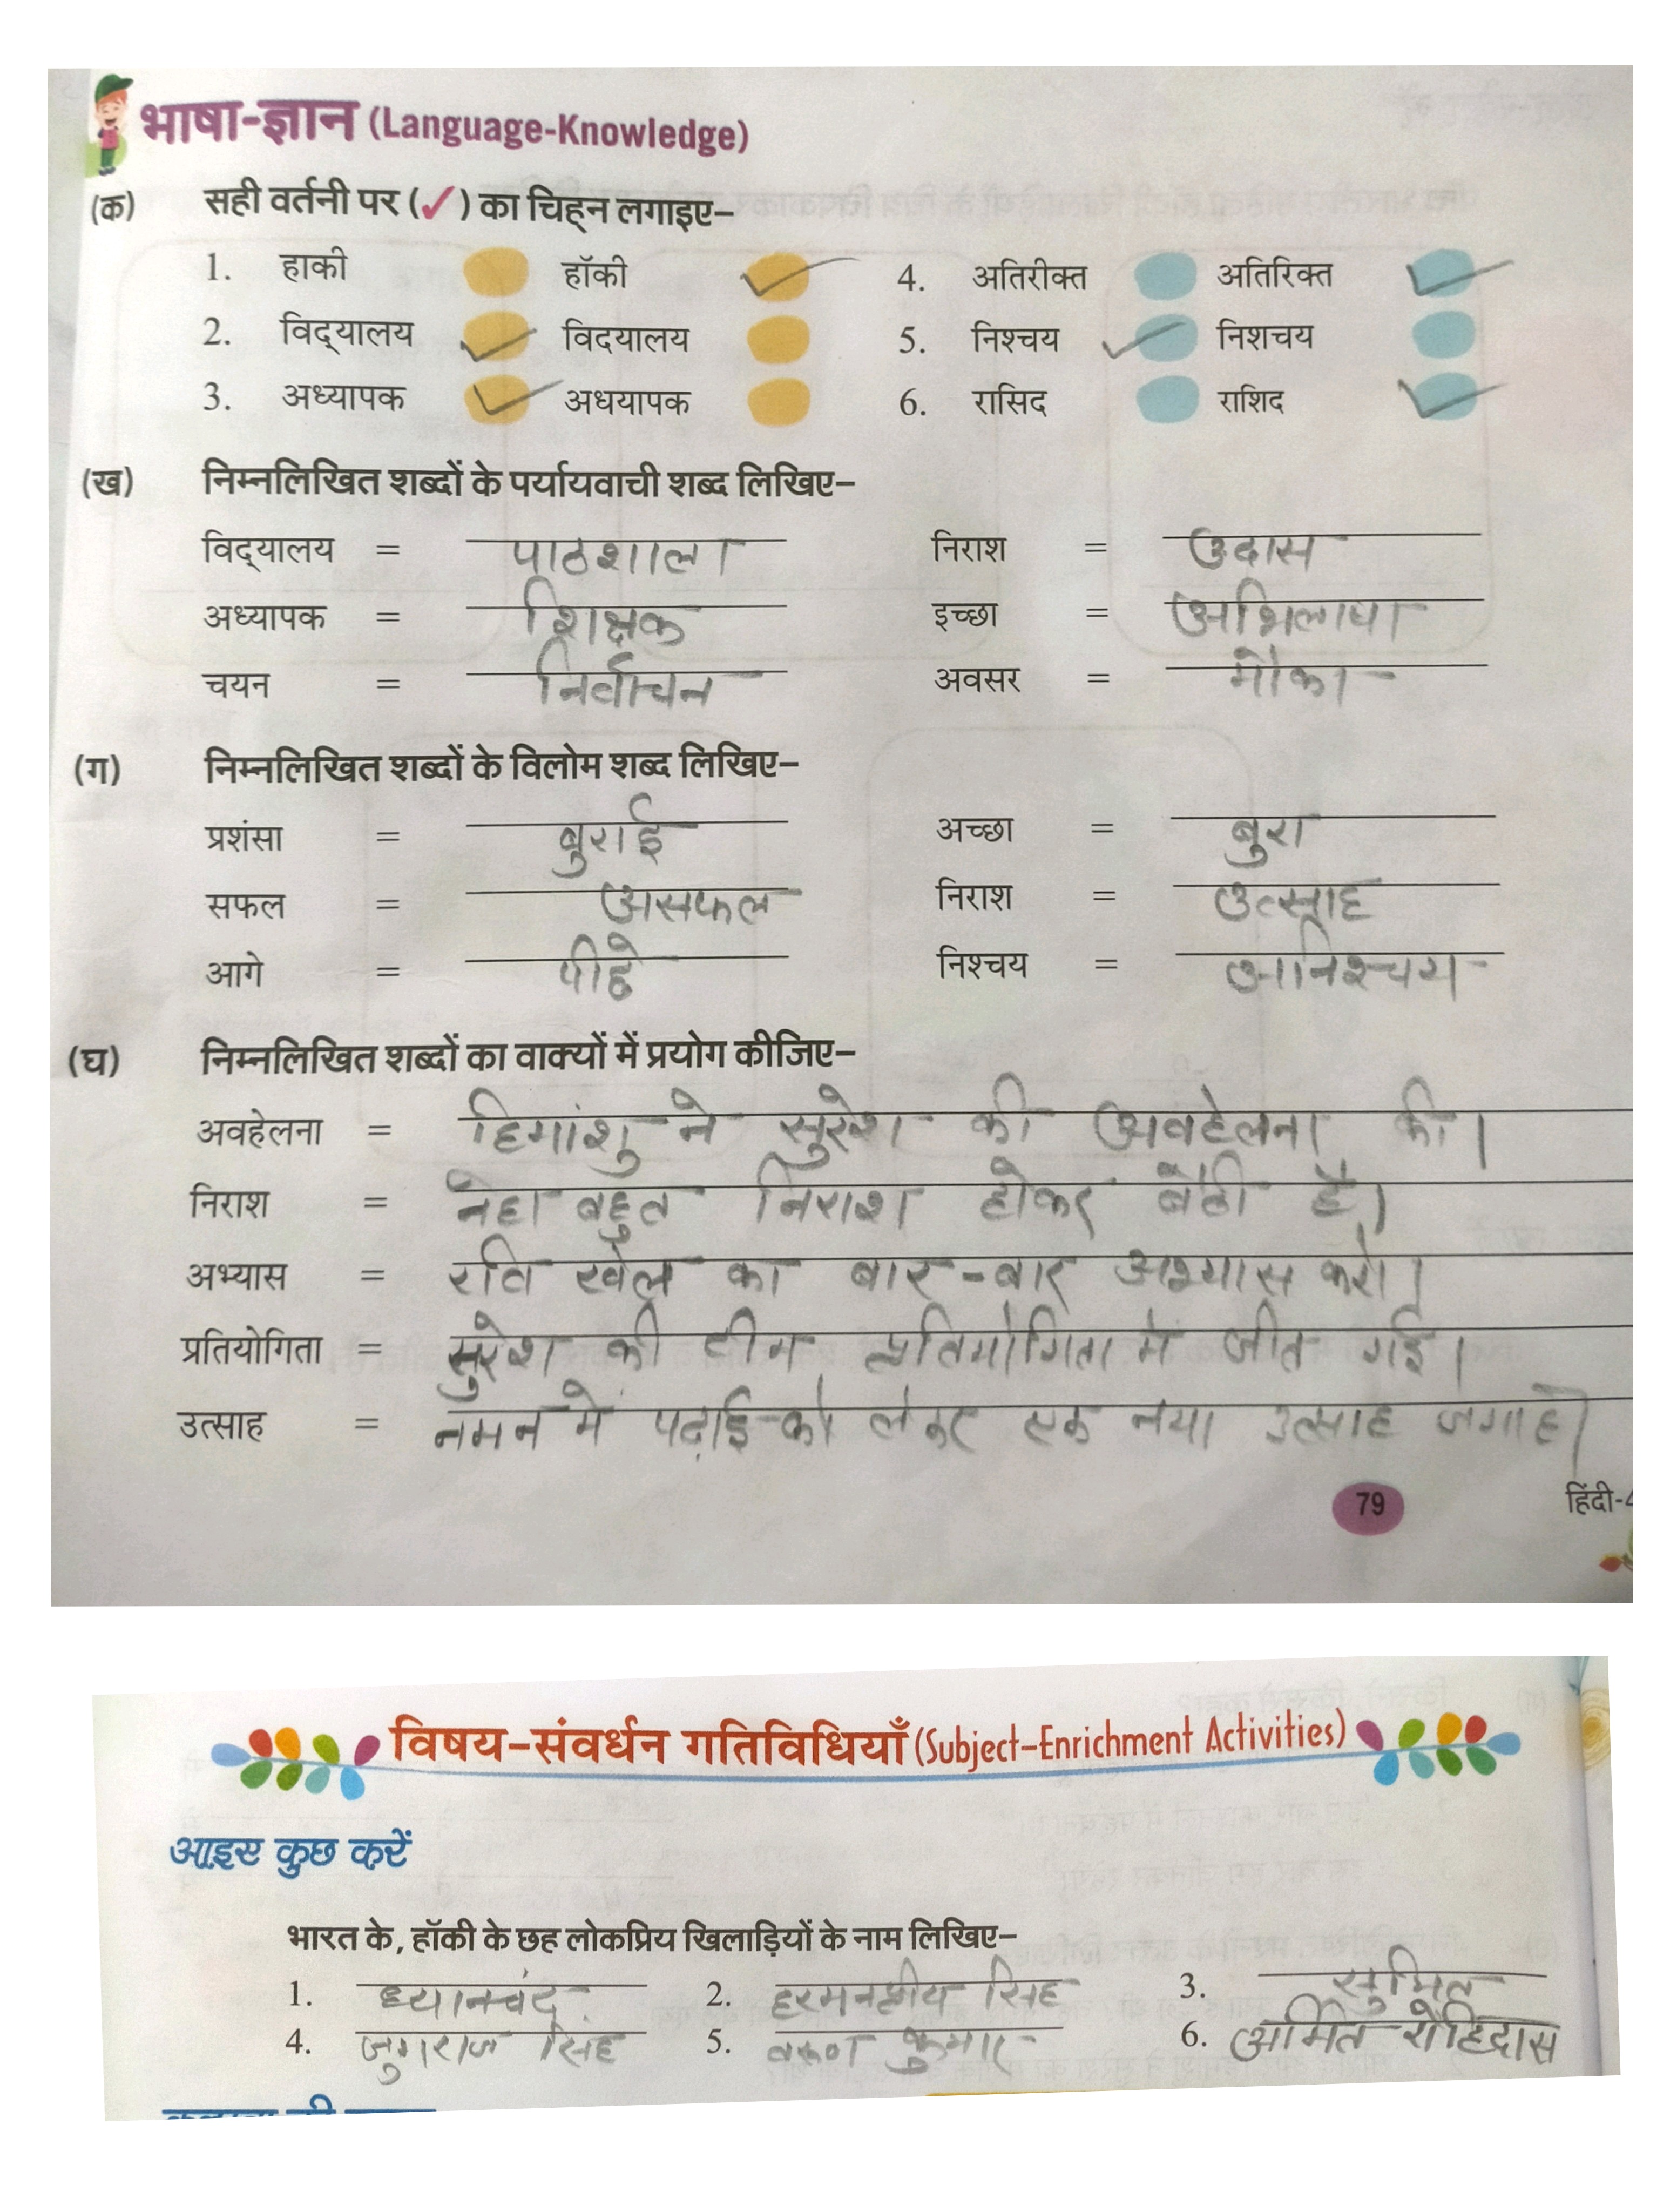 भाषा-ज्ञान (Language-Knowledge)
(क) सही वर्तनी पर (✓) का चिह्न लगाइए–
1. हाकी हॉकी ✓ 4. अतिरीक्त अतिरिक्त ✓
2. विद्यालय ✓ विदयालय 5. निश्चय ✓ निशचय
3. अध्यापक ✓ अधयापक 6. रासिद राशिद ✓
(ख) निम्नलिखित शब्दों के पर्यायवाची शब्द लिखिए–
विद्यालय = पाठशाला निराश = उदास
अध्यापक = शिक्षक इच्छा = अभिलाषा
चयन = निर्वाचन अवसर = मौका
(ग) निम्नलिखित शब्दों के विलोम शब्द लिखिए–
प्रशंसा = बुराई अच्छा = बुरा
सफल = असफल निराश = उत्साह
आगे = पीछे निश्चय = अनिश्चय
(घ) निम्नलिखित शब्दों का वाक्यों में प्रयोग कीजिए–
अवहेलना = हिमांशु ने सुरेश की अवहेलना की।
निराश = नेहा बहुत निराश होकर बैठी है।
अभ्यास = रवि खेल का बार-बार अभ्यास करो।
प्रतियोगिता = सुरेश की टीम प्रतियोगिता में जीत गई।
उत्साह = नमन में पढ़ाई को लेकर एक नया उत्साह जगा है।
79
हिंदी-4
विषय-संवर्धन गतिविधियाँ (Subject-Enrichment Activities)
आइए कुछ करें
भारत के, हॉकी के छह लोकप्रिय खिलाड़ियों के नाम लिखिए–
1. ध्यानचंद 2. हरमनप्रीय सिंह 3. सुमित
4. जुगराज सिंह 5. वरुण कुमार 6. अमित रोहिदास